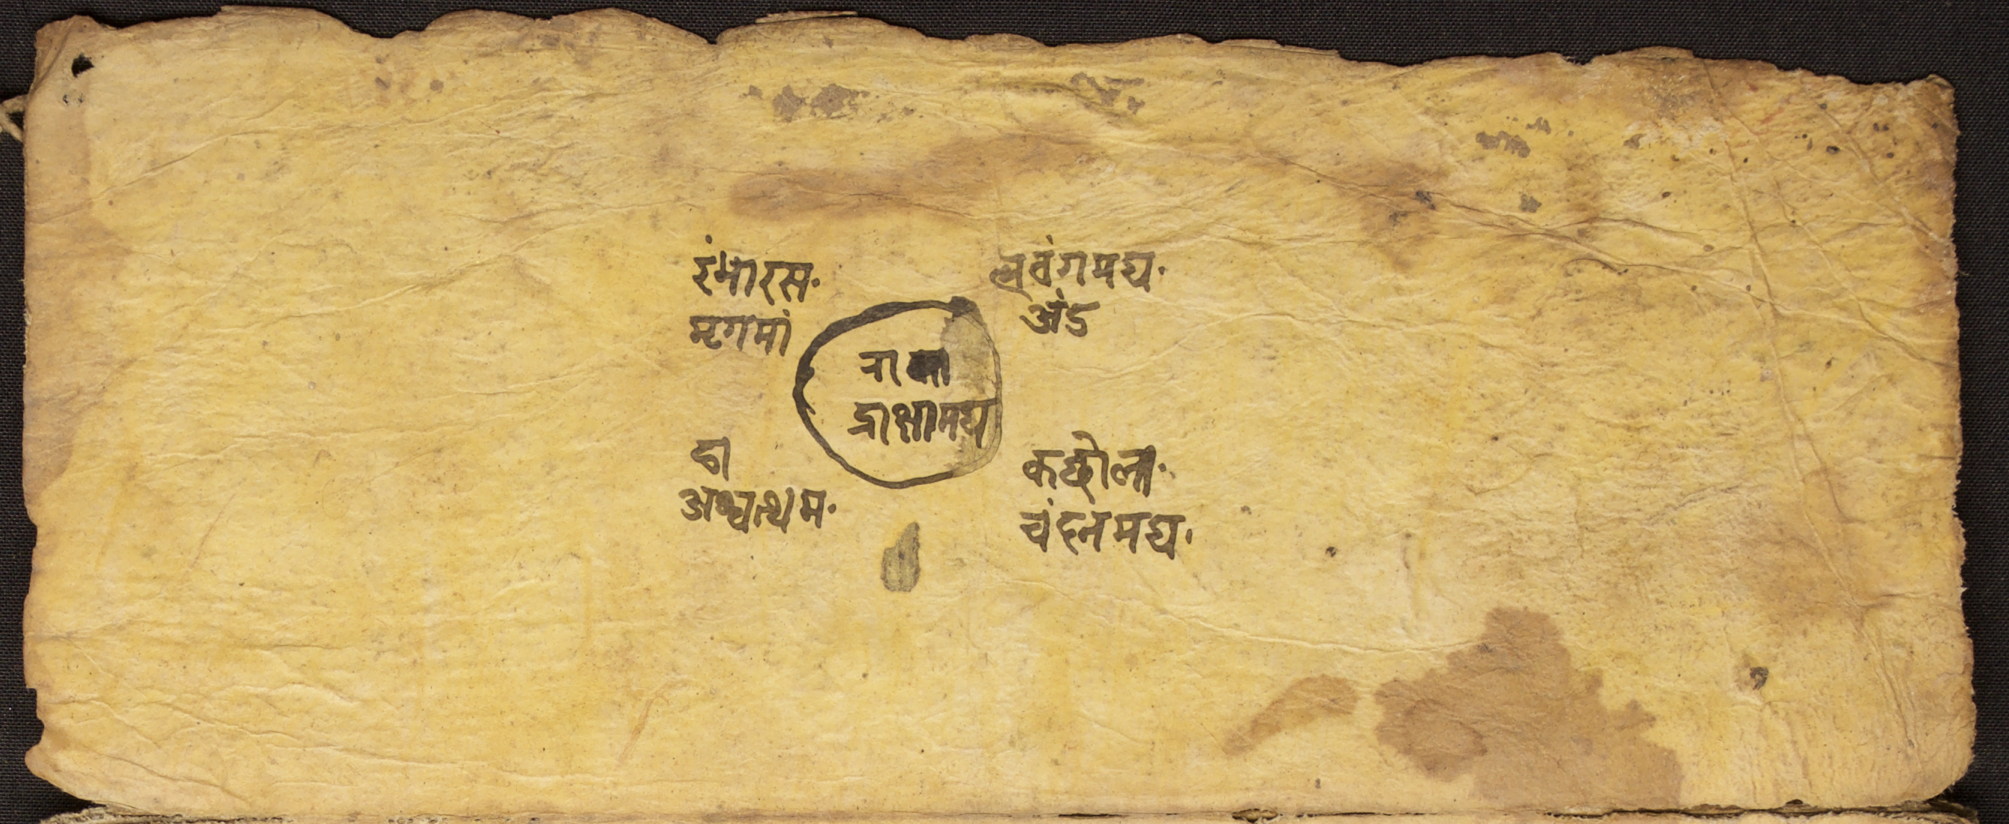 रंभारस·
मृगमां
लवंगमद्य·
अंड
द्राक्षामद्य
डा
अश्वत्थम·
चंदनमद्य·